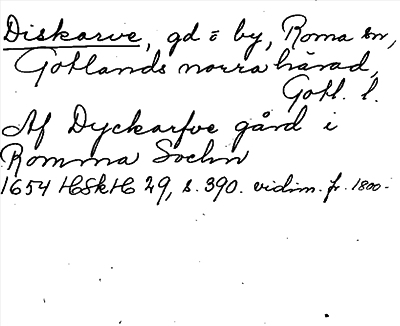 Diskarve, gd o by, Roma sn,
Gotlands norra härad,
Gotl. l.
Af Dyckarfve gård i
Romma Sochn
1654 HSkH 29, s. 390. vidim. fr. 1800-